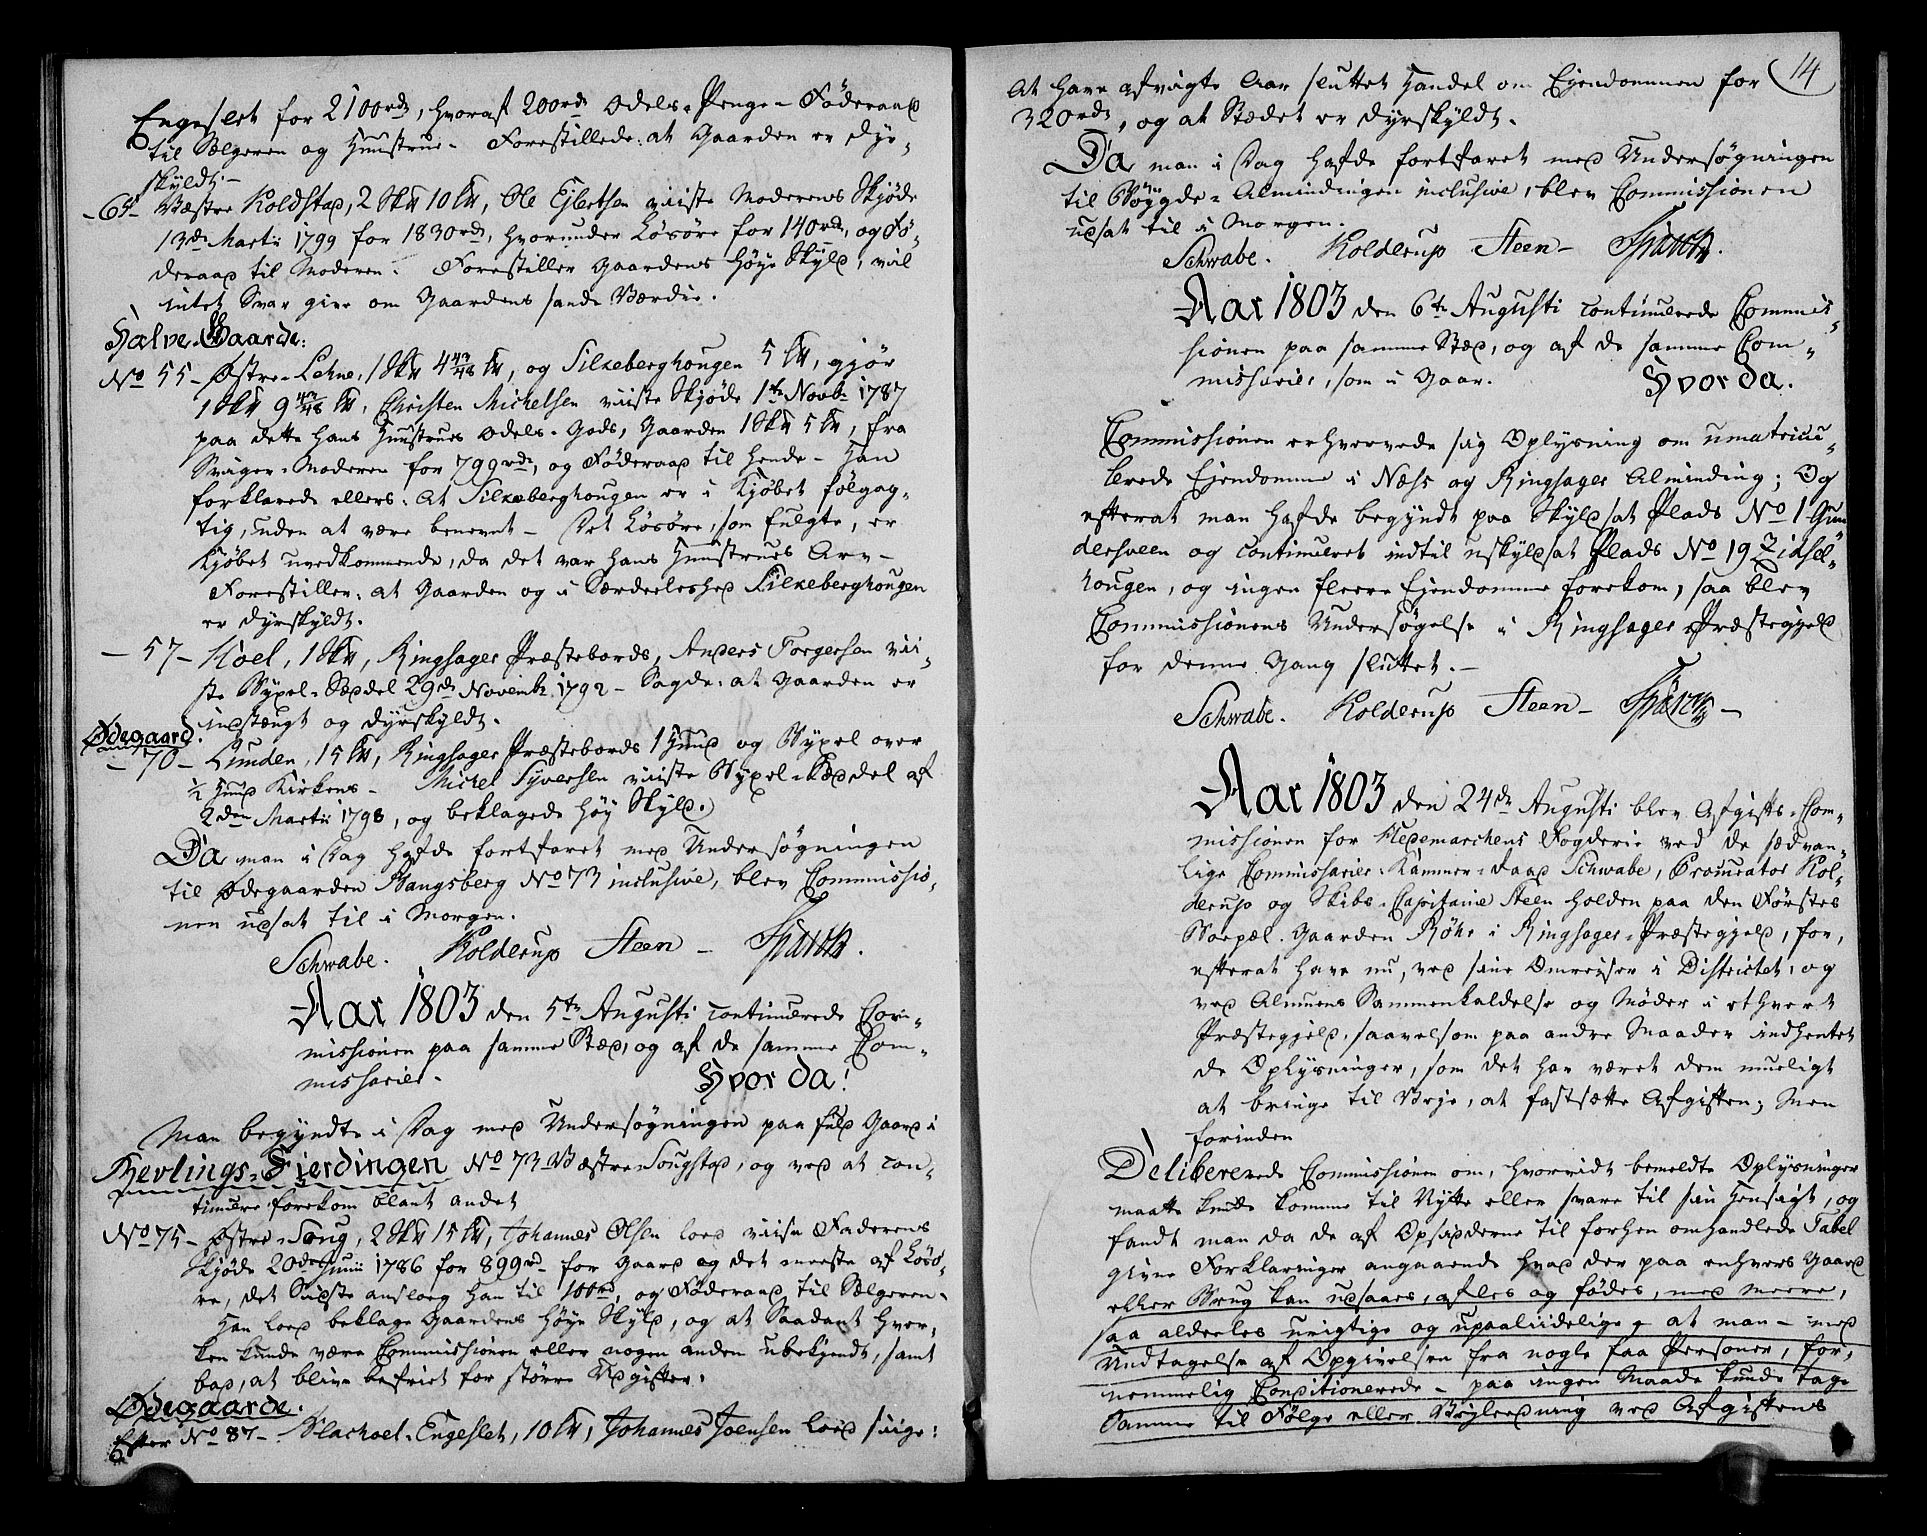 Engeslet for 2100rdr, hvoraf 200rdr Odels-Penge - Föderaad
til Sælgeren og Hustrue - Forestillede: at Gaarden er dyr-
skyldt. -
- 65 - Væstre Koldstad, 2 Skp 10 Lp, Ole Ejlertsen viiste Moderens Skjöde
13de Martii 1799 for 1830rdr, hvorunder Lösöre for 140rdr, og Fö-
deraad til Moderen. Forestiller Gaardens höye Skyld, vil
intet Svar give om Gaardens sande Værdie.
Halve Gaarde:
No 55 - Østre-Lehne, 1 Skp 4 47/48 Lp, og Silkeberghougen 5 Lp, gjör
1 Skp 9 47/48 Lp, Christen Michelsen viiste Skjöde 1te Novbr 1787
paa dette hans Hustrues Odels-Gods, Gaarden 1 Skp 5 Lp, fra
Sviger-Moderen for 799rdr, og Föderaad til hende - Han
forklarede ellers: At Silkeberghougen er i Kjöbet fölgag-
tig, uden at være benevnt - Det Lösöre, som fulgte, er
Kjöbet uvedkommende, da det var hans Hustrues Arv -
Forestiller: at Gaarden og i Særdeleshed Silkeberghougen
er dyrskyldt.
- 57 - Hoel, 1 Skp, Ringsager Præstebords, Anders Torgersen vii-
ste Bygsel-Sæddel 29de Novembr 1792 - Sagde: at Gaarden er
indstængt og dyrskyldt.
Ødegaard.
- 70 - Lunden, 15 Lp, Ringsager Præstebords 1 Huud og Bygsel over
1/2 Huud Kirkens - Michel Syversen viiste Bygsel-Sæddel af
2den Martii 1798, og beklagede höy Skyld.
Da man i Dag hafde fortfaret med Undersögningen
til Ødegaarden Stangsberg No 73 inclusive, blev Commissio-
nen udsat til i Morgen.
Schwabe. Kolderup Steen -
Aar 1803 den 5te Augusti continuerede Com-
missionen paa samme Stæd, og af de samme Com-
missarier. Hvor da!
Man begyndte i Dag med Undersögningen paa fuld Gaard i
Kevlings-Fierdingen No 73 Væstre-Sougstad, og ved at con-
tinuere forekom blant andet
No 75 - Østre-Soug, 2 Skp 15 Lp, Johannes Olsen lod viise Faderens
Skjöde 20de Junii 1786 for 899rd - for Gaard og det meeste af Lösö-
re, det Sidste anslog han til 100rd, og Föderaad til Sælgeren -
Han lod beklage Gaardens höye Skyld, og at Saadant hver-
ken kunde være Commissionen eller nogen anden ubekjendt, samt
bad, at blive befriet for större Udgifter.
Ødegaarde.
Efter No 87 - Engeslet, 10 Lp, Johannes Joensen lod sige:
14
At have afvigte Aar sluttet Handel om Ejendommen for
320rdr, og at Stædet er dyrskyldt.
Da man i Dag hafde fortfaret med Undersögningen
til Böygde-Almindingen inclusive, blev Commissionen
udsat til i Morgen.
Schwabe. Kolderup Steen -
Aar 1803 den 6te Augusti continuerede Commis-
sionen paa samme Stæd, og af de samme Com-
missarier, som i Gaar. Hvor da.
Commissionen erhvervede sig Oplysning om umatricu-
lerede Ejendomme i Næss og Ringsager Alminding; Og
efterat man hafde begyndt paa Skyldsat Plads No 1 Gun
dersveen og continueret indtil uskyldsat Plads No 19
hougen, og ingen fleere Ejendomme forekom, saa blev
Commissionens Undersögelse i Ringsager Præstegjeld
for denne Gang sluttet. -
Schwabe. Kolderup Steen -
Aar 1803 den 24de Augusti blev Afgifts-Com-
missionen for Hedemarchens Fogderie ved de sædvan-
lige Commissarier: Kammer-Raad Schwabe, Procurator Kol-
derup og Skibs-Capitaine Steen holden paa den Förstes
Boepæl. Gaarden Röhr i Ringsager-Præstegjeld, for,
efterat have nu, ved sine Omreiser i Districtet, og
ved Almuens Sammenkaldelse og Möder i ethvert
Præstegjeld, saavelsom paa andre Maader indhentet
de Oplysninger, som det har været dem mueligt
at bringe til Veye, at fastsætte Afgiften; Men
forinden
Delibererede Commissionen om, hvorvidt bemeldte Oplysninger
maatte kunde komme til Nytte eller svare til sin Hensigt, og
fandt man da de af Opsidderne til forhen omhandlede Tabel
givne Forklaringer angaaende hvad der paa enhvers Gaard
eller Brug kan udsaaes, afles og födes, med meere,
saa aldeeles urigtige og upaaliidelige, at man - med
Undtagelse af Opgivelsen fra nogle faa Personer, for-
nemmelig Conditionerede - paa ingen Maade kunde tage
Samme til Fölge eller Veyledning ved Afgiftens